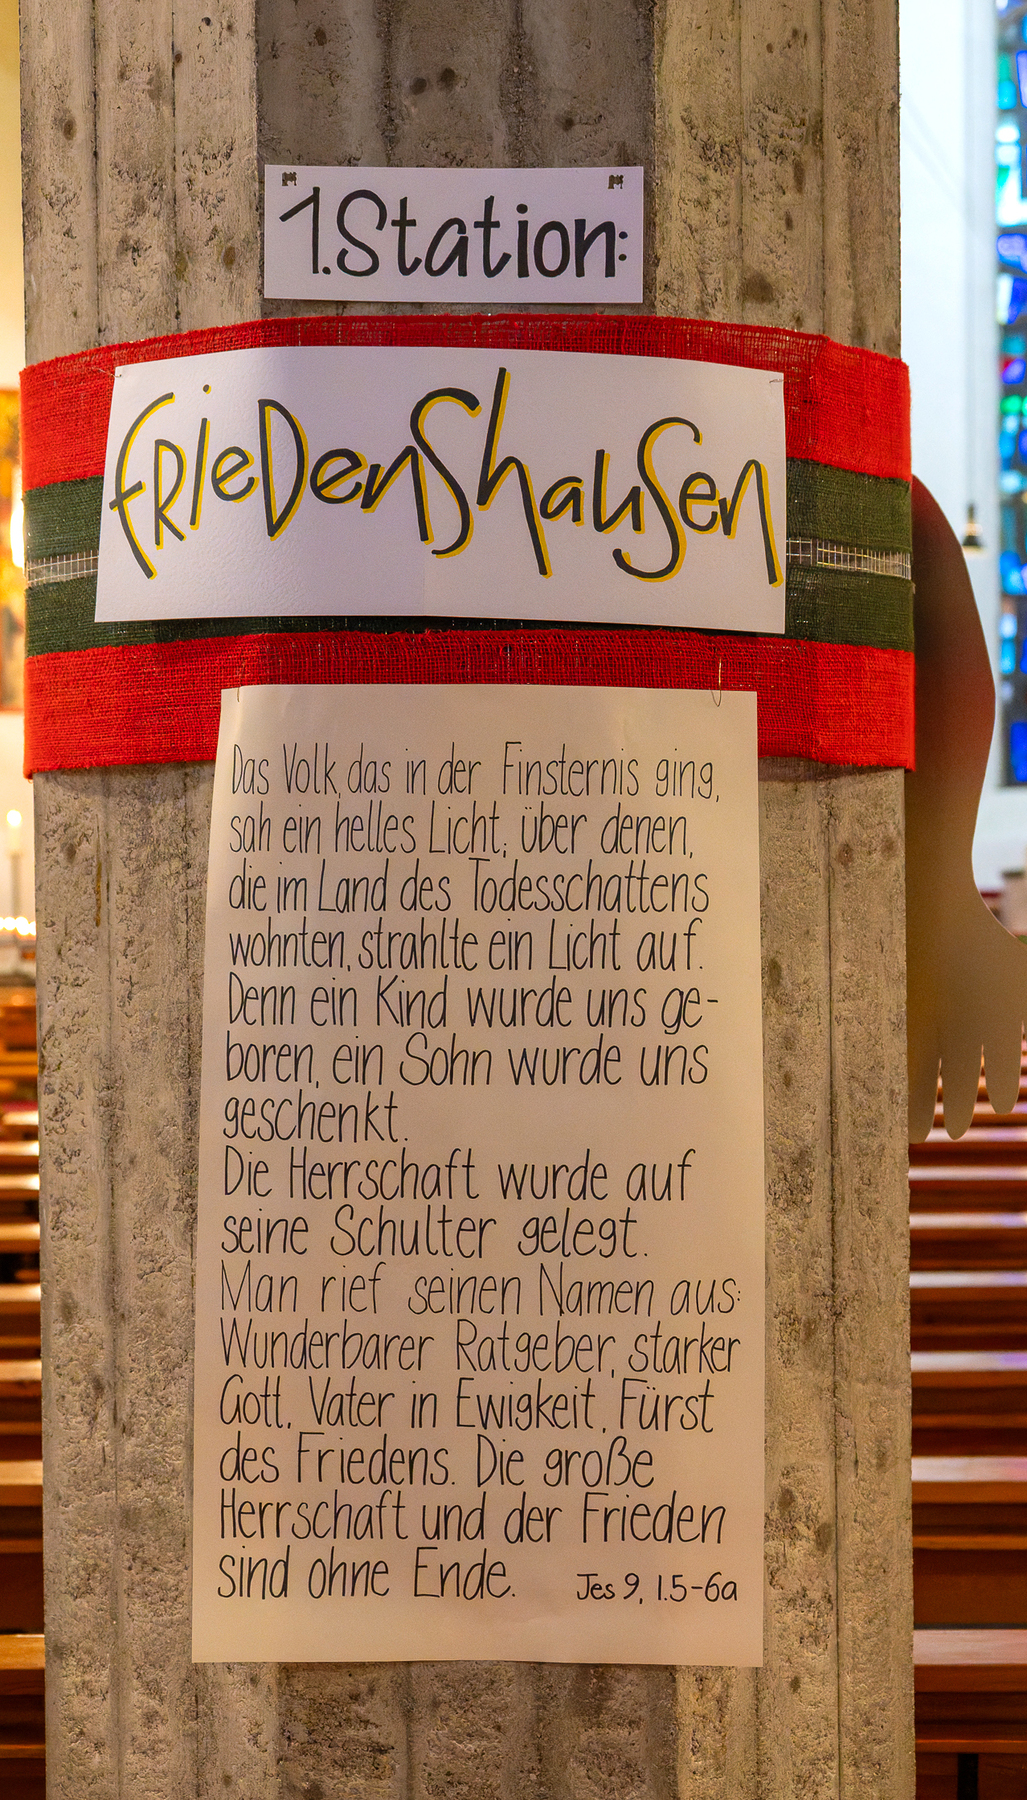 1. Station:
Friedenshausen
Das Volk, das in der Finsternis ging,
sah ein helles Licht; über denen,
die im Land des Todesschattens
wohnten, strahlte ein Licht auf.
Denn ein Kind wurde uns ge-
boren, ein Sohn wurde uns
geschenkt.
Die Herrschaft wurde auf
seine Schulter gelegt.
Man rief seinen Namen aus:
Wunderbarer Ratgeber, starker
Gott, Vater in Ewigkeit, Fürst
des Friedens. Die große
Herrschaft und der Frieden
sind ohne Ende.
Jes 9, 1.5-6a